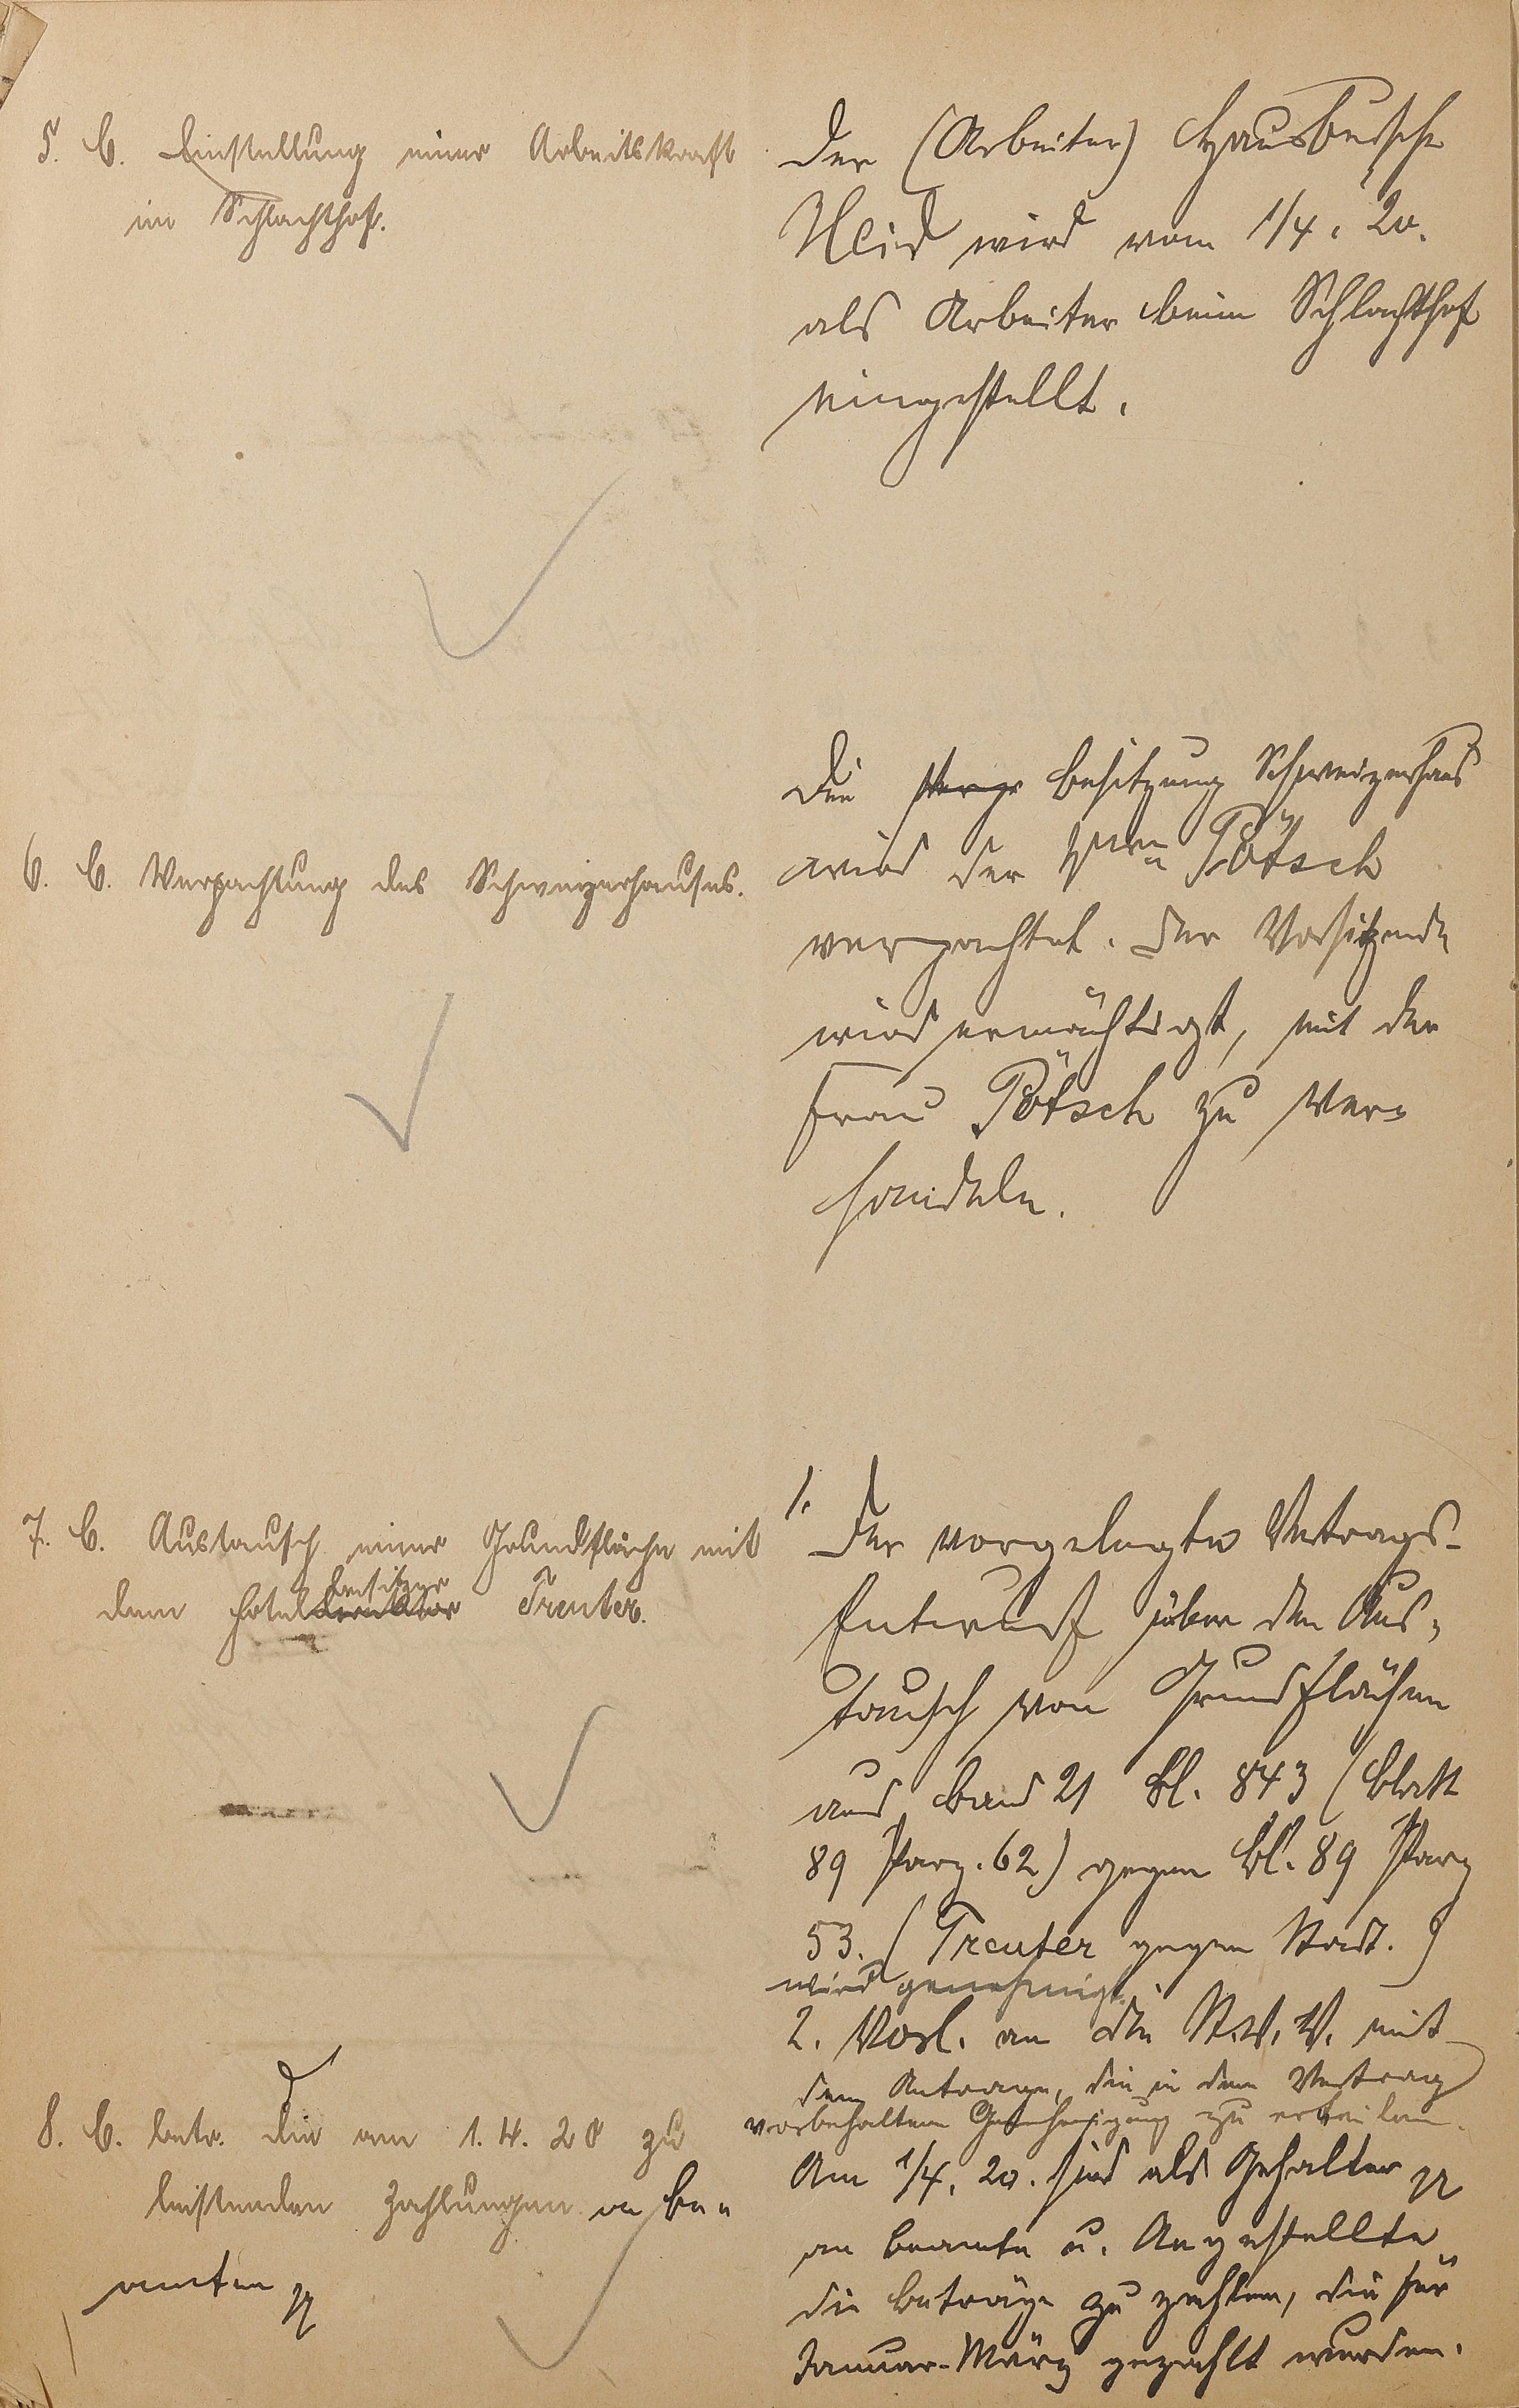 5. B. Einstellung einer Arbeitskraft
im Schlachthof.
Der (Arbeiter) Hausbursche
wird vom 1/4. 20.
als Arbeiter beim Schlachthof
eingestellt.
6. B. Verpachtung des Schweizerhauses.
Die Besitzung Schweizerhaus
wird der Frau Pötsch
verpachtet. Der Vorsitzende
wird ermächtigt, mit der
Frau Pötsch zu ver=
handeln.
7. B. Austausch einer Grundfläche mit
besitzer
dem Hotel direktor Treuter.
1. Der vorgelegte Vertrags-
Entwurf über den Aus=
tausch von Grundflächen
aus Band 21 Bl. 843 (Blatt
89 Parz. 62) gegen Bl. 89 Parz
53. (Treuter gegen Stadt.)
wird genehmigt.
2. Vorl. an die St.V.V. mit
dem Antrage, die in dem Vertrag
vorbehaltene Genehmigung zu erteilen.
8. B. betr. die am 1.4.20 zu
leistenden Zahlungen an Be=
amten pp
Am 1/4. 20. sind als Gehälter pp
an Beamte u. Angestellte
die Beträge zu zahlen, die für
Januar-März gezahlt wurden.